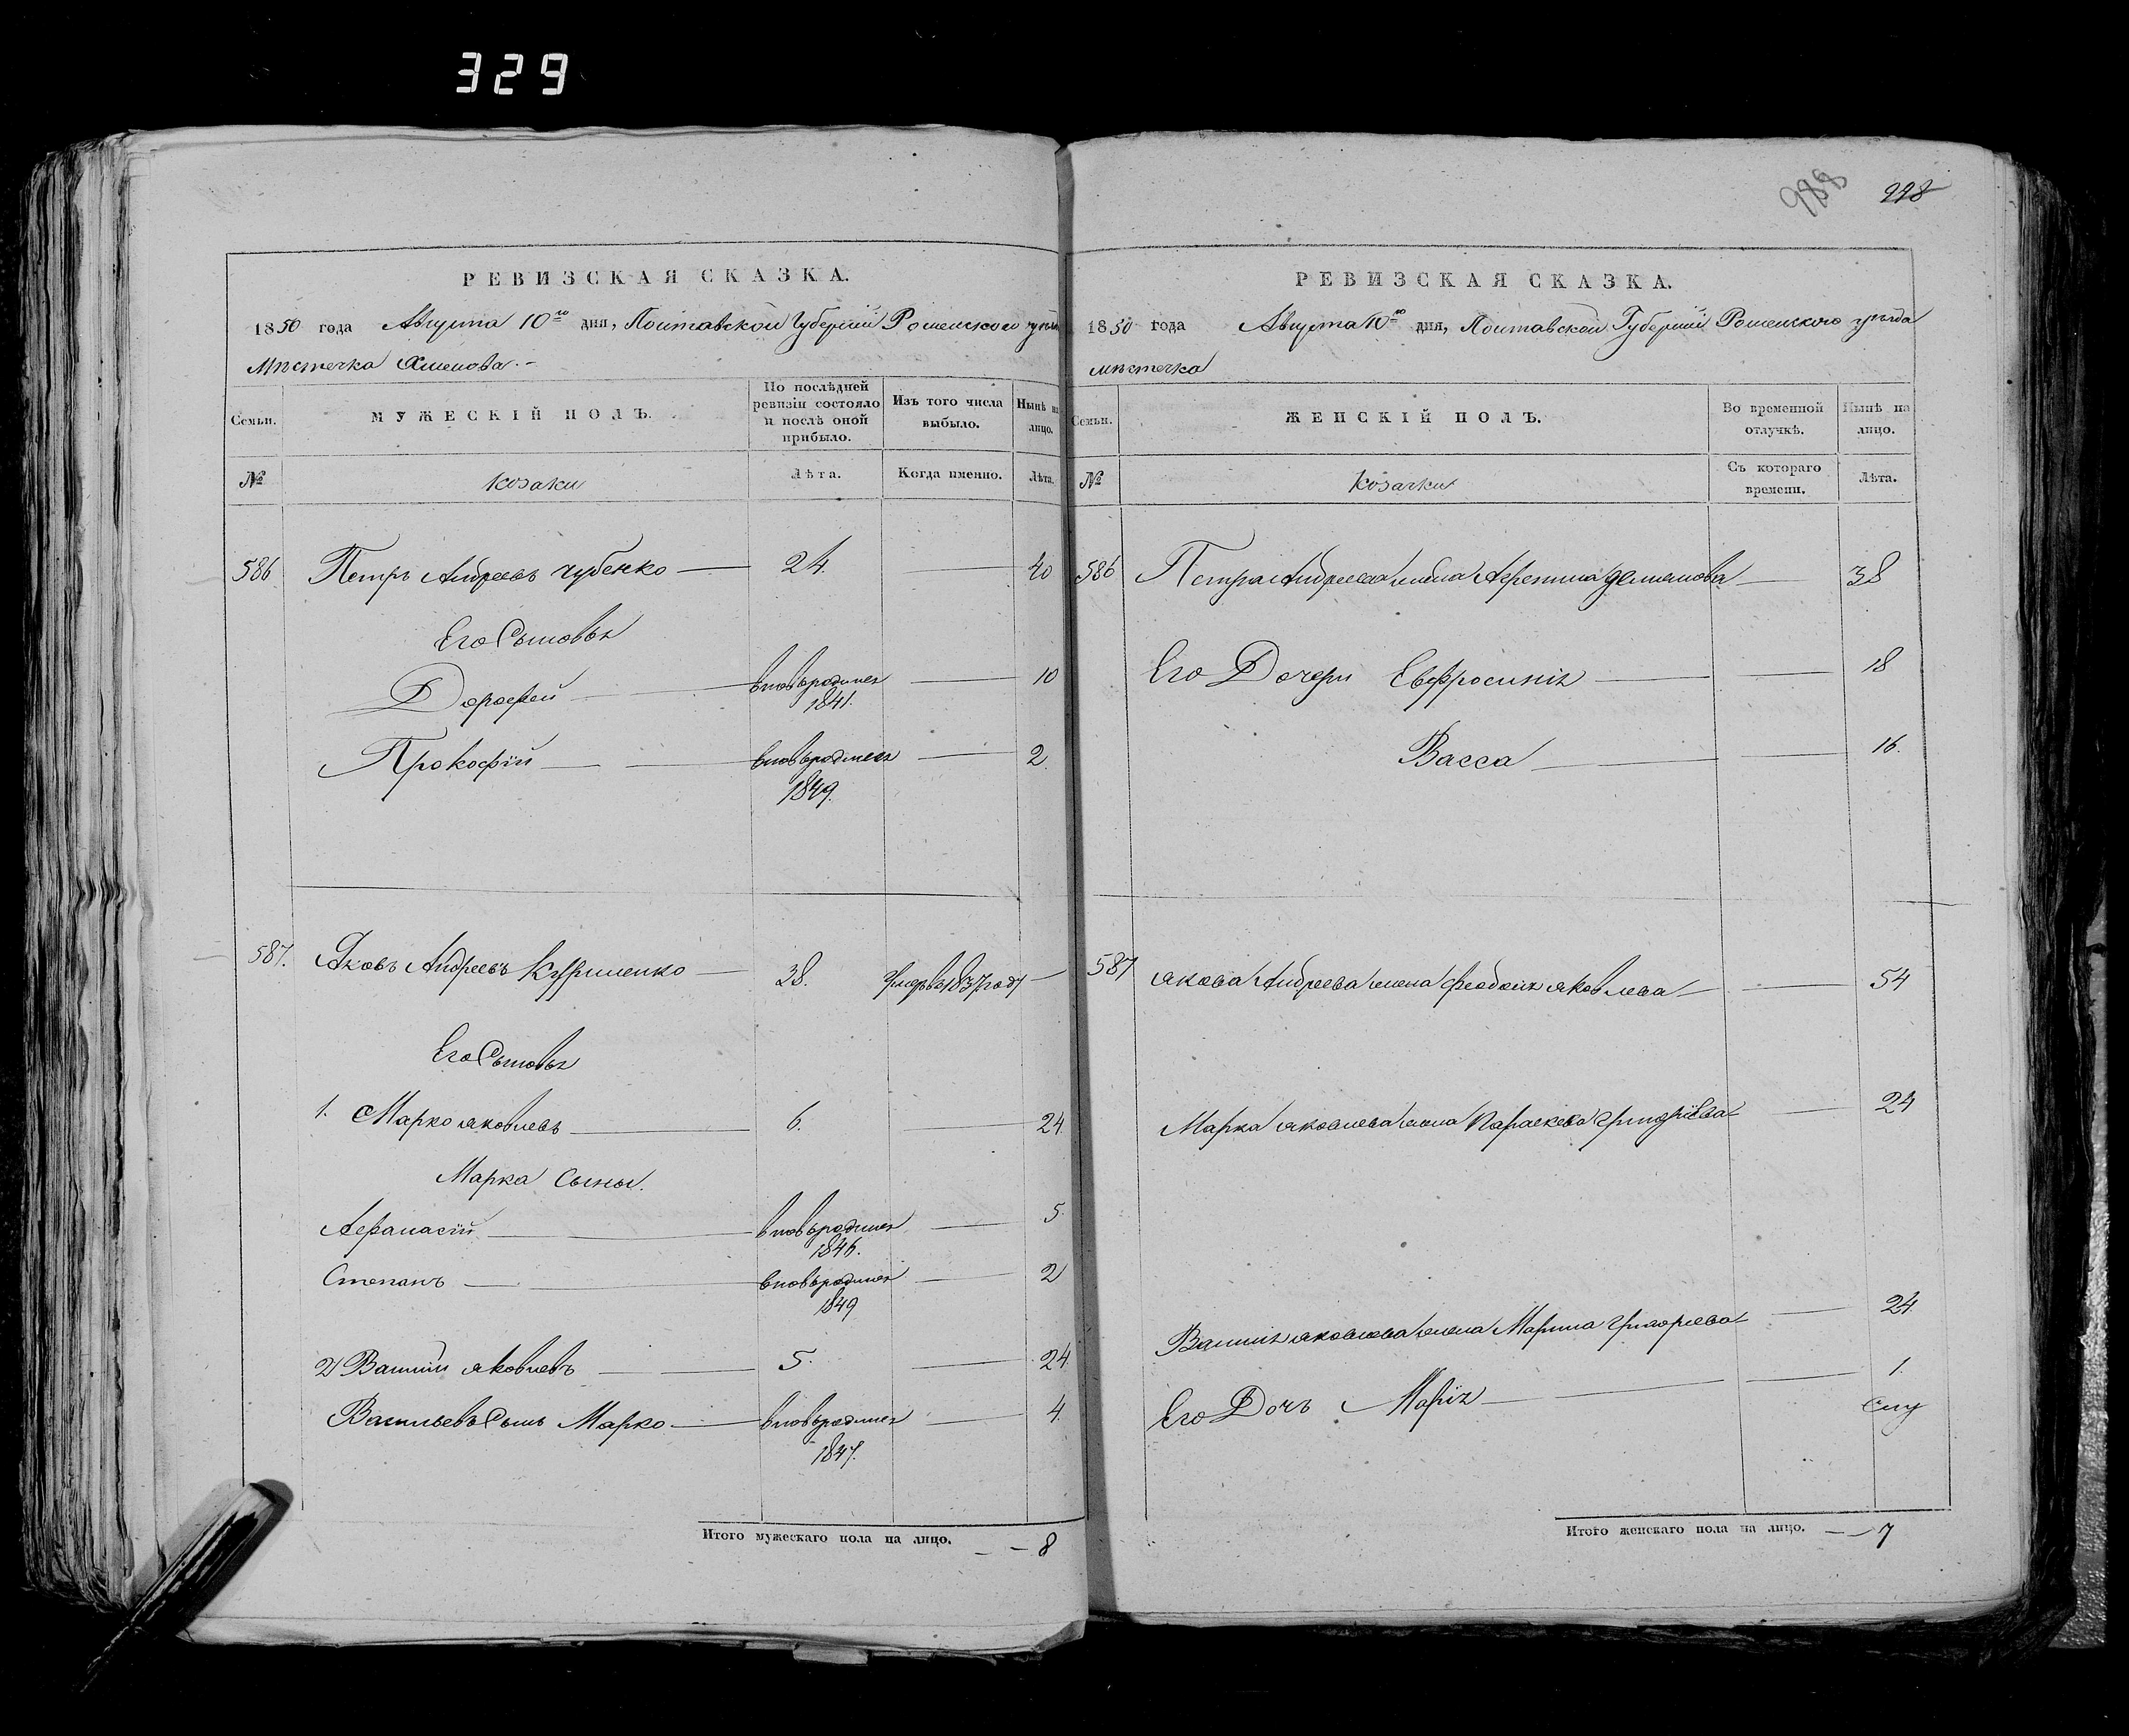 329
988 998
РЕВИЗСКАЯ СКАЗКА.
1850 года Августа 10го дня, Полтавской Губернии Роменского уезда
Местечка
Семьи. МУЖЕСКІЙ ПОЛЪ. По послѣдней ревизіи состояло и послѣ оной прибыло. Изъ того числа выбыло. Нынѣ на лицо.
№ Козаки Лѣта. Когда именно. Лѣта.
586 Петръ Андреевъ Чубенко 24. 40
Его Сыновья
Дорофей вновьродился 1841. 10
Прокофій вновьродился 1849. 2
587. Яковъ Андреевъ 38. Умеръ в 1837 году
Его Сыновья
1. Марко Яковлевъ 6. 24
Марка Сыны.
Афанасій вновьродился 1846. 5
Степанъ вновьродился 1849 2
2 Василий Яковлевъ 5. 24
Васильевъ Сынъ Марко вновьродился 1847. 4
Итого мужескаго пола на лицо. 8
РЕВИЗСКАЯ СКАЗКА.
1850 года Августа 10го дня, Полтавской Губернии Роменского уезда
местечка
Семьи. ЖЕНСКІЙ ПОЛЪ. Во временной отлучкѣ. Нынѣ на лицо.
№ Козачки Съ котораго времени. Лѣта.
586 Петра Андреева жена Агрепина 38
Его Дочери Евфросинія 18
Васса 16.
587 Якова Андреева жена Феодосия Яковлева 54
Марка Яковлева жена Параскева 24
Василия Яковлева жена Марина Григорьева 24
Его Дочь Марія 1.
Итого женскаго пола на лицо. 7